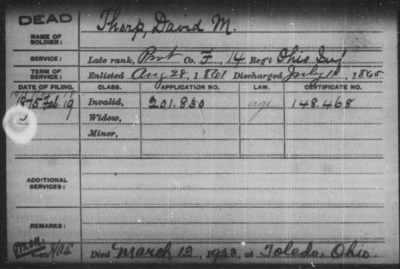 DEAD
NAME OF SOLDIER: Thorp, David M.
SERVICE: Late rank, Pvt Co. F, 14 Reg't Ohio Inf
TERM OF SERVICE: Enlisted Aug 28, 1861 Discharged July 11, 1865
DATE OF FILING. CLASS. APPLICATION NO. LAW. CERTIFICATE NO.
1875 Feb. 19 Invalid, 201.830 age 148.468
Widow,
Minor,
ADDITIONAL SERVICES:
REMARKS:
Died March 12, at Toledo, Ohio.